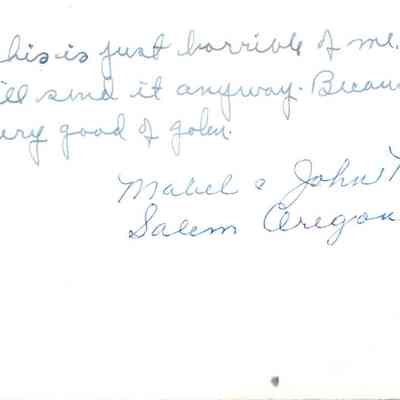 his is just horrible of me.
ill send it anyway. Becau
ery good of John.
Mabel & John
Salem Oregon